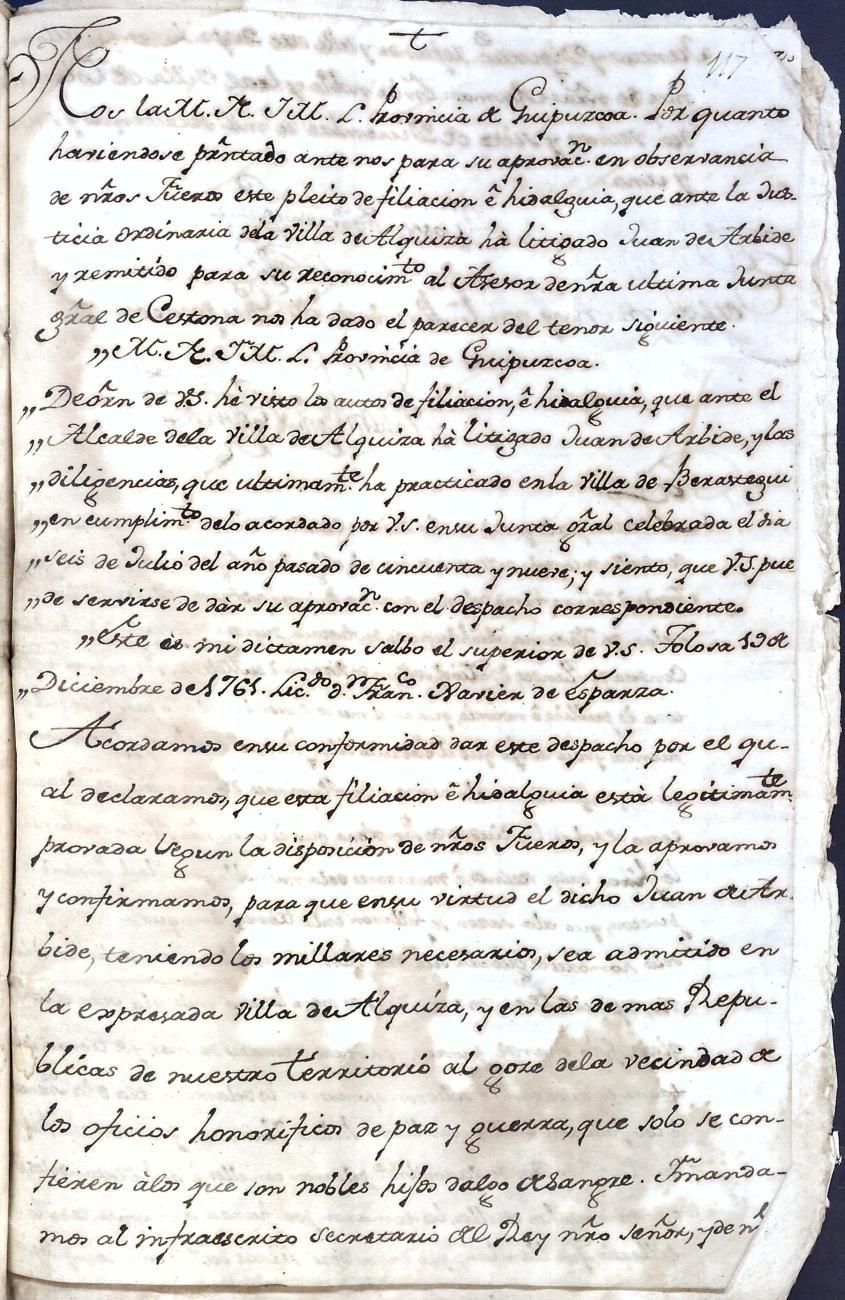 117
Nos la M. N. Y M. L. Provincia de Guipuzcoa. Por quanto
haviendose prñtado ante nos para su aprovacⁿ. en observancia
de nr̃os Fueros este pleito de filiacion ẽ hidalguia, que ante la Jus-
ticia Ordinaria dela Villa de Alquiza hà litigado Juan de Arbide
y remitido para su reconocimᵗᵒ al Asesor de nr̃a ultima Junta
gr̃al de Cestona nos ha dado el parecer del tenor siguiente.
„ M. N. Y M. L. Provincia de Guipuzcoa.
„ De orñ de V.S. hè visto los autos de filiacion, ẽ hidalguia, que ante el
„ Alcalde dela Villa de Alquiza hà litigado Juan de Arbide, y las
„ diligencias, que ultimamᵗᵉ ha practicado enla Villa de Berastegui
„ en cumplimᵗᵒ delo acordado por V.S. ensu Junta gr̃al celebrada el dia
„ seis de Julio del año pasado de cincuenta y nueve; y siento, que V.S. pue
„ de servirse de dàr su aprovacⁿ. con el despacho correspondiente.
„ Este ès mi dictamen salbo el superior de V.S. Tolosa 19 de
„ Diciembre de 1761. Lic.ᵈᵒ d.ⁿ Franᶜᵒ. Xavier de Esparza.
Acordamos ensu conformidad dar este despacho por el qu-
al declaramos, que esta filiacion ẽ hidalguia està legitimamᵗᵉ
provada segun la disposicion de nr̃os Fueros, y la aprovamos
y confirmamos, para que ensu virtud el dicho Juan de Ar-
bide, teniendo los millares necesarios, sea admitido en
la expresada Villa de Alquiza, y en las de mas Repu-
blicas de nuestro territorio al goze dela vecindad de
los oficios honorificos de paz y guerra, que solo se con-
fieren àlos que son nobles hijos dalgo de sangre. Y manda-
mos al infraescrito secretario del Rey nr̃o señor, y de nr̃